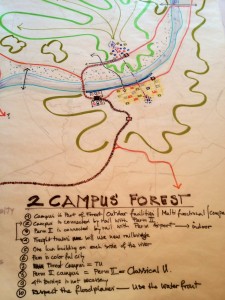 2 CAMPUS FOREST
① Campus is Part of Forest / Outdoor facilities / Multi functional / Campus
② Campus is connected by rail with Perm II
③ Perm I is connected by rail with Perm Airport indoor
④ Freight trains will use new railbridge
⑤ One low building on each side of the river
⑥ Perm is colorful city
⑦ Forest Campus = TU
⑧ Perm II campus = Perm II Classical U.
⑨ 4th Bridge is not necessary
⑩ Respect the floodplain — Use the Waterfront